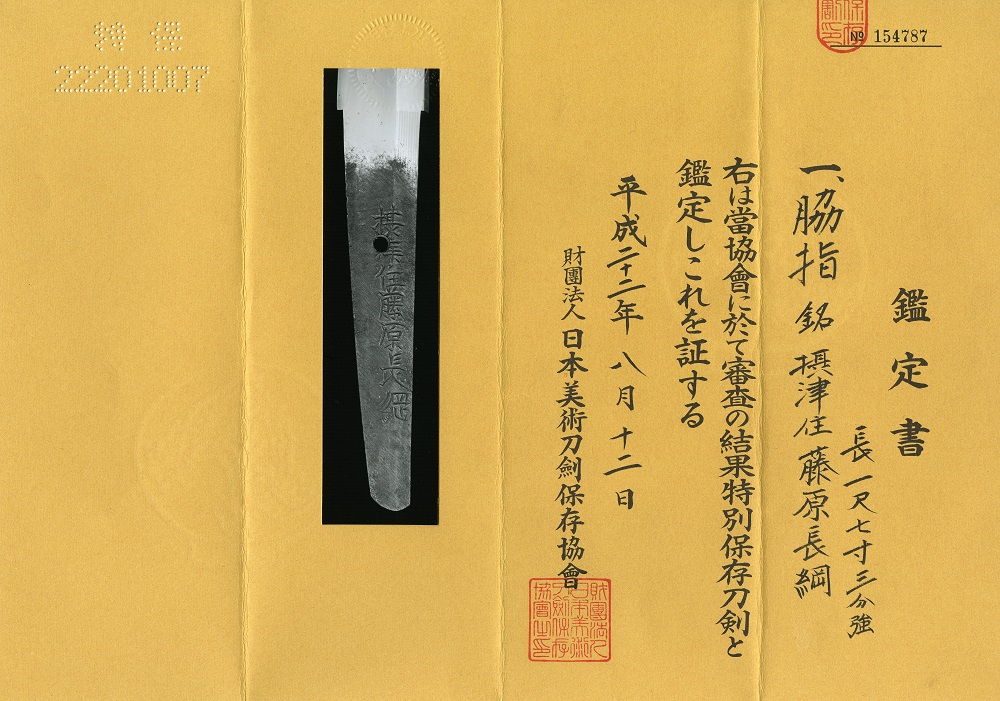 鑑定書
一、脇指 銘 摂津住藤原長綱
長一尺七寸三分強
右は當協會に於て審査の結果特別保存刀剣と
鑑定しこれを証する
平成二十二年八月十二日
財團法人日本美術刀劍保存協會
財團法人日本美術刀劍保存協會之印
№ 154787
特保
22201007
摂州住藤原長綱